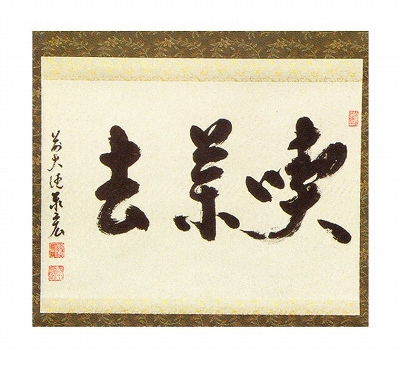 喫茶去
前大徳泰宏